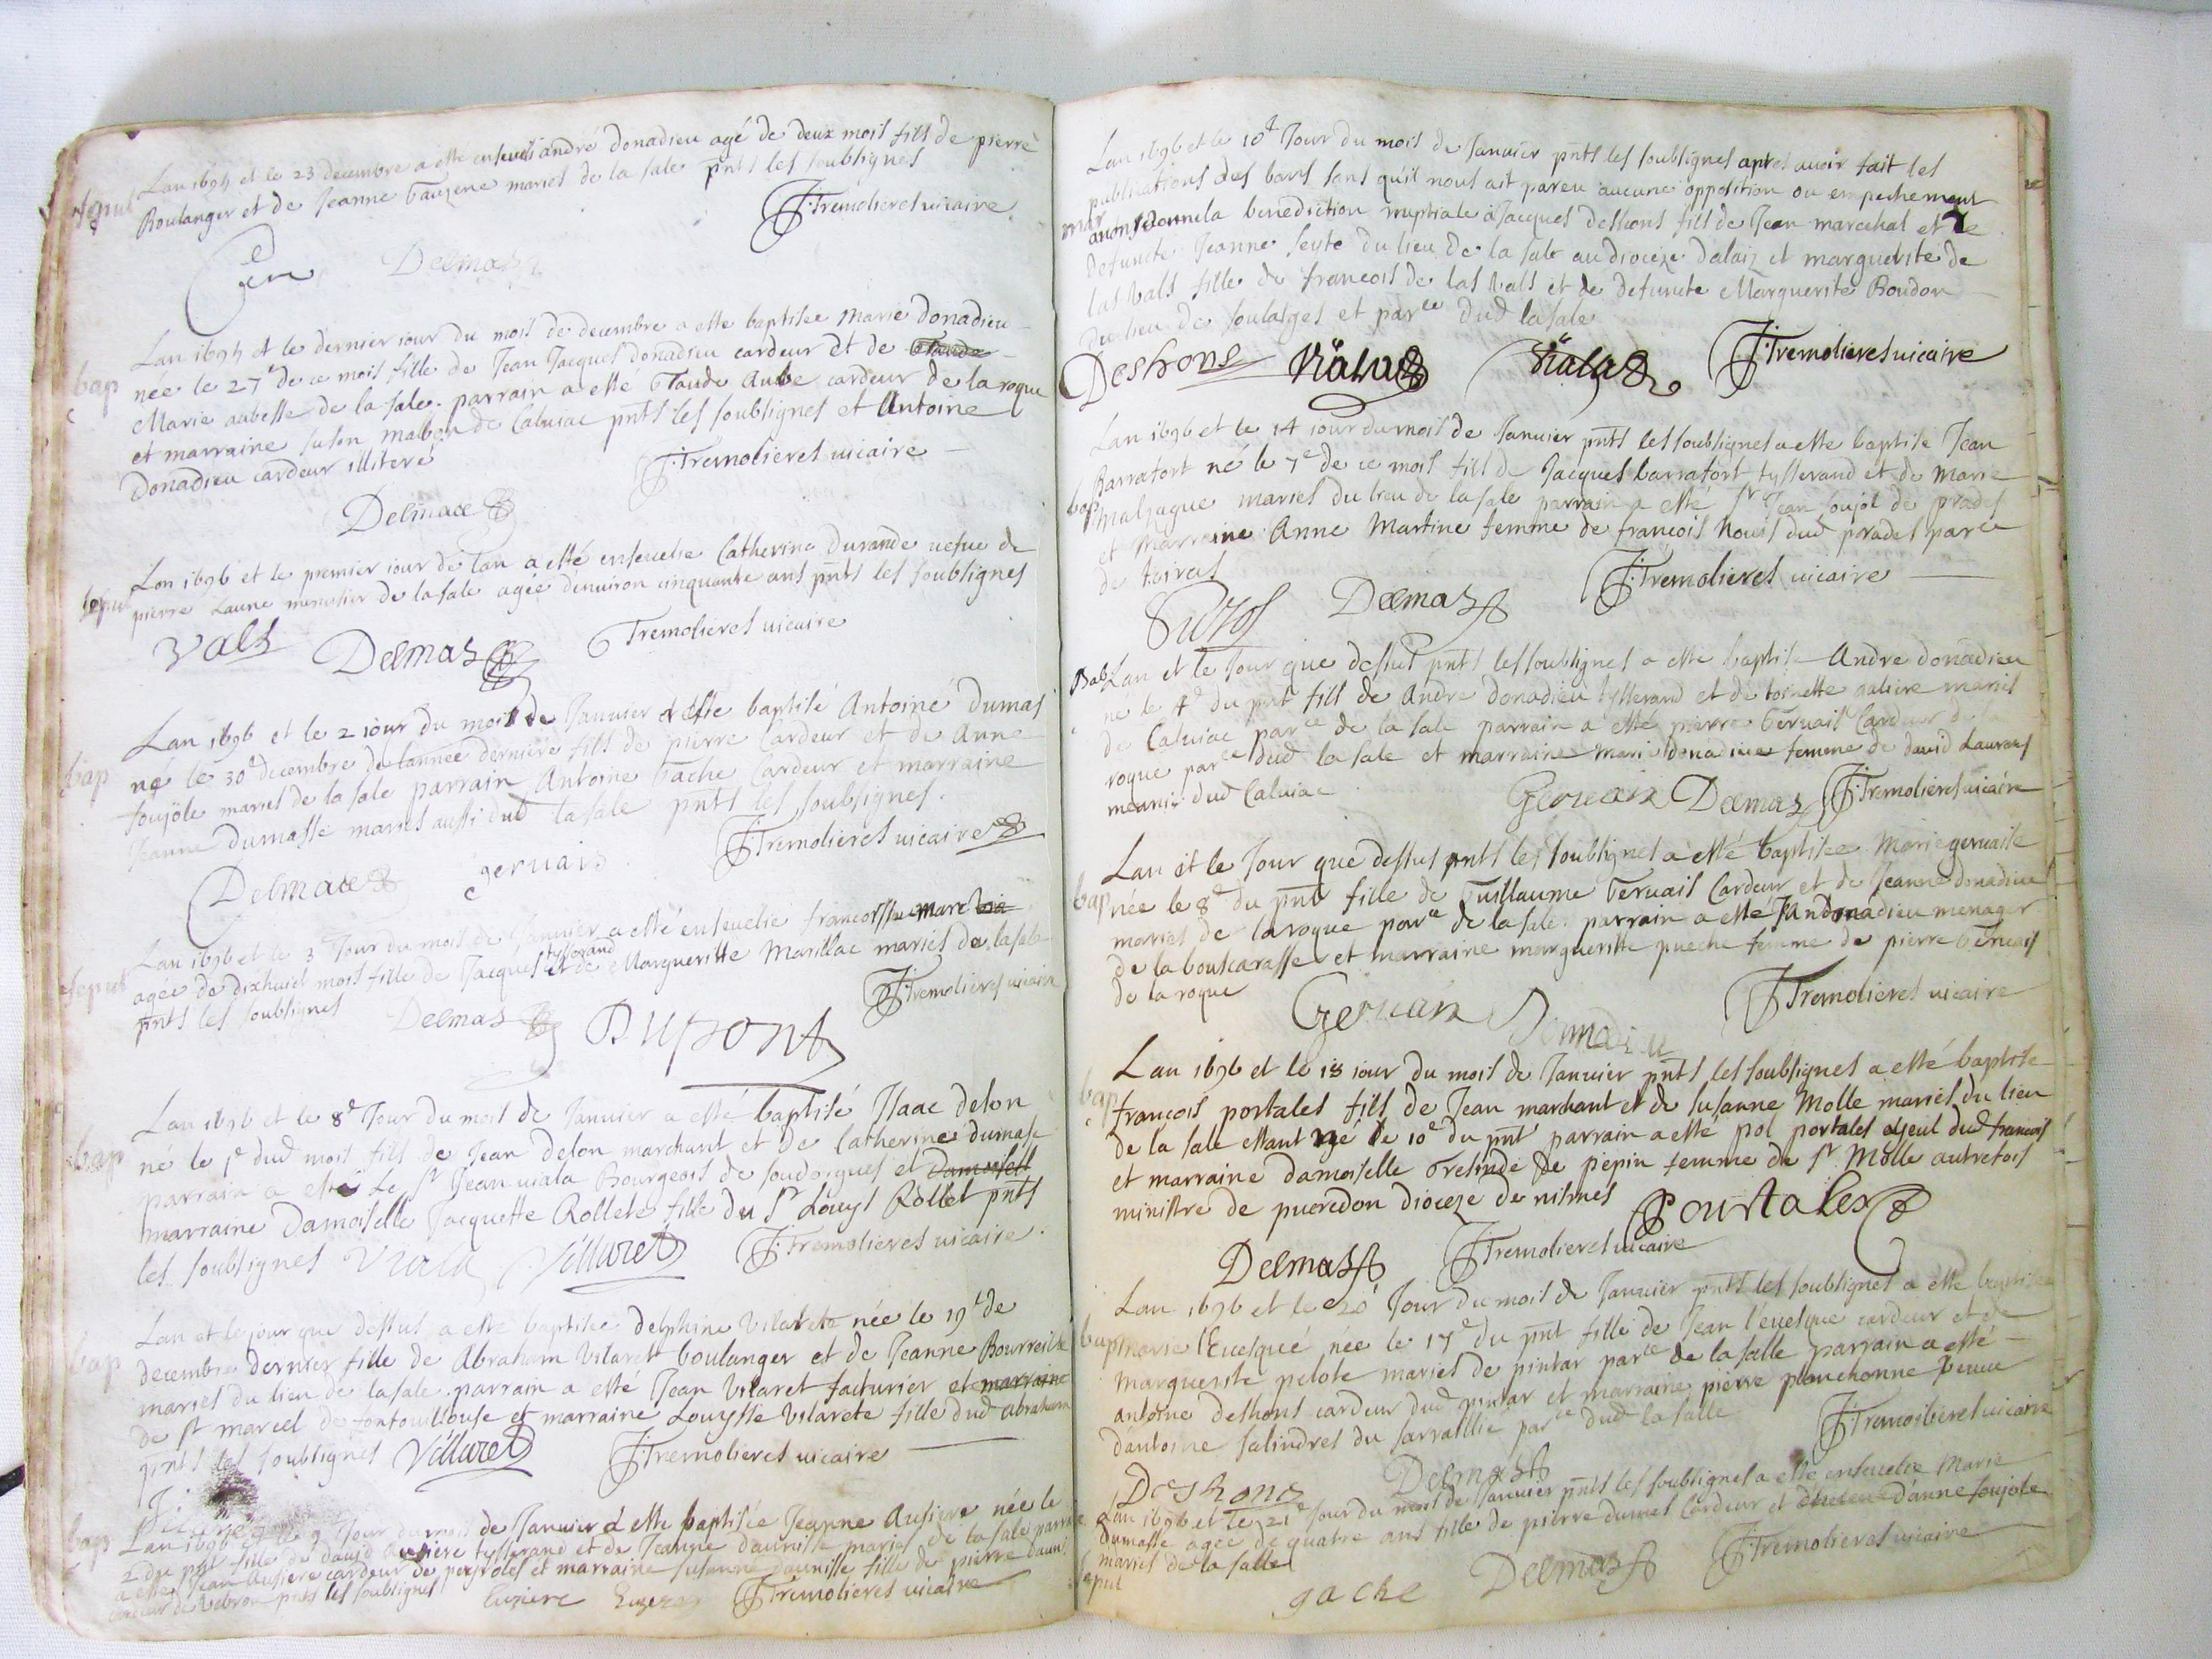 Lan 1695 et le 23 decembre a este enseveli andré donadieu agé de deux mois fils de pierre
sepul
Boulanger et de Jeanne Gauzene mariés de la sale pnts les soubsignés
J. Tremolieres vicaire
Delmas
Lan 1695 et le dernier iour du mois de decembre a este baptisee Marie donadieu
bap
née le 27e de ce mois fille de Jean Jacques donadieu cardeur et de Claude
Marie aubesse de la sale. parrain a esté Claude Aube cardeur de la roque
et marraine suson de Caluiac pnts les soubsignes et Antoine
Donadieu cardeur illiteré
J. Tremolieres vicaire
Delmas
Lan 1696 et le premier iour de lan a esté enseuelie Catherine Durande uefue de
sepul
pierre Laune menusier de la sale agée denuiron cinquante ans pnts les soubsignes
Vals Delmas Tremolieres uicaire
Lan 1696 et le 2 iour du mois de Januier a este baptisé Antoine Dumas
bap
né le 30e decembre de lannee derniere fils de pierre Cardeur et de Anne
soujole mariés de la sale parrain Antoine Gache Cardeur et marraine
Jeanne Dumasse mariés aussi dud lasale pnts les soubsignes.
J. Tremolieres uicaire
Delmas gervais
Lan 1696 et le 3e Jour du mois de Januier a esté enseuelie francoise
sepul
agee de dixhuict mois fille de Jacques tysserand et de Margueritte Marillac mariés de la sale
pnts les soubsignes Delmas Dupont J. Tremolieres uicaire
Lan 1696 et le 8e Jour du mois de Januier a esté baptisé Isaac delon
bap
né le 1e dud mois fils de Jean delon marchant et de Catherine dumasse
parrain a esté Le Sr Jean viala Bourgeois de soudorgues et Damoiselle
marraine Damoiselle Jacquette Rollete fille du Sr Louys Rollet pnts
les soubsignes Viala Villaret J. Tremolieres uicaire
Lan et le jour que dessus a esté baptisee delphine Vilarete née le 19e de
bap
decembre dernier fille de Abraham Vilarett boulanger et de Jeanne
mariés du lieu de lasale. parrain a esté Jean Vilaret facturier et marraine
de St marcel de fontouillouse et marraine Louysse Vilarete fille dud abraham
pnts les soubsignes Villaret J. Tremolieres uicaire
bap
Lan 1696 et le 9 Jour du mois de Januier a este baptisée Jeanne Ausiere née le
2 du pnt fille de dauid Ausiere tysserand et de Jeanne daunisse mariés de la sale parrain
a esté Jean Ausiere cardeur de peyroles et marraine susanne daunisse fille de pierre
cardeur de pnts les soubsignes J. Tremolieres uicaire
Lan 1696 et le 10e Jour du mois de Januier pnts les soubsignes apres auoir fait les
publications des bans sans qu'il nous ait pareu aucune opposition ou empechement
mar
auons donné la benediction nuptiale a Jacques deshons fils de Jean marechal et de
defuncte Jeanne seste du lieu de la sale au dioceze dalais et marguerite de
las Vals fille de francois de las Vals et de defuncte Marguerite Boudon
du lieu de soulatges et parce dud lasale
Deshons Viala Viala J. Tremolieres uicaire
Lan 1696 et le 14 iour du mois de Januier pnts les soubsignes a este baptisé Jean
Barrafort né le 7e de ce mois fils de Jacques barrafort tysserand et de Marie
bap
Malzague mariés du lieu de la sale parrain a esté Sr Jean soujol de prades
et Marraine Anne Martine femme de francois Nouis dud prades parce
de toiras
Delmas J. Tremolieres uicaire
Bap
Lan et le Jour que dessus pnts les soubsignes a este baptisé Andre donadieu
né le 4e du pnt fils de Andre donadieu tysserand et de toinette galiere mariés
de Caluiac parce de la sale parrain a esté pierre Geruais Cardeur de la
roque parce dud la sale et marraine Marie donadieue femme de dauid Laurens
dud Caluiac
Geruais Delmas J. Tremolieres uicaire
Lan et le Jour que dessus pnts les soubsignes a esté baptisée Marie geruaise
bap
née le 8e du pnt fille de Guillaume Geruais Cardeur et de Jeanne donadieue
mariés de laroque parce de la sale. parrain a esté Jean donadieu menager
de la bouscarasse et marraine margueritte pueche femme de pierre Geruais
de la roque
Geruais Donadieu J. Tremolieres uicaire
Lan 1696 et le 18 iour du mois de Januier pnts les soubsignes a esté baptisé
bap
francois portales fils de Jean marchant et de Susanne Molle mariés du lieu
de la sale estant né le 10e du pnt parrain a esté pol portales ayeul dud francois
et marraine damoiselle Gresinde de pepin femme de Sr Molle autrefois
ministre de pueredon dioceze de nismes Pourtales
Delmas J. Tremolieres uicaire
Lan 1696 et le 20e Jour du mois de Januier pnts les soubsignes a este baptisee
bap
Marie l'Euesque née le 17e du pnt fille de Jean l'euesque cardeur et de
Marguerite pelote mariés de pintar parce de la salle parrain a esté
antoine deshons cardeur dud pintar et marraine pierre planchonne veuue
dantoine salindres du parce dud la salle
J. Tremolieres uicaire
Deshons Delmas
Lan 1696 et le 21e Jour du mois de Januier pnts les soubsignes a este enseuelie Marie
dumasse agee de quatre ans fille de pierre dumas Cardeur et d'anne soujole
mariés de la salle
sepul
gache Delmas J. Tremolieres uicaire